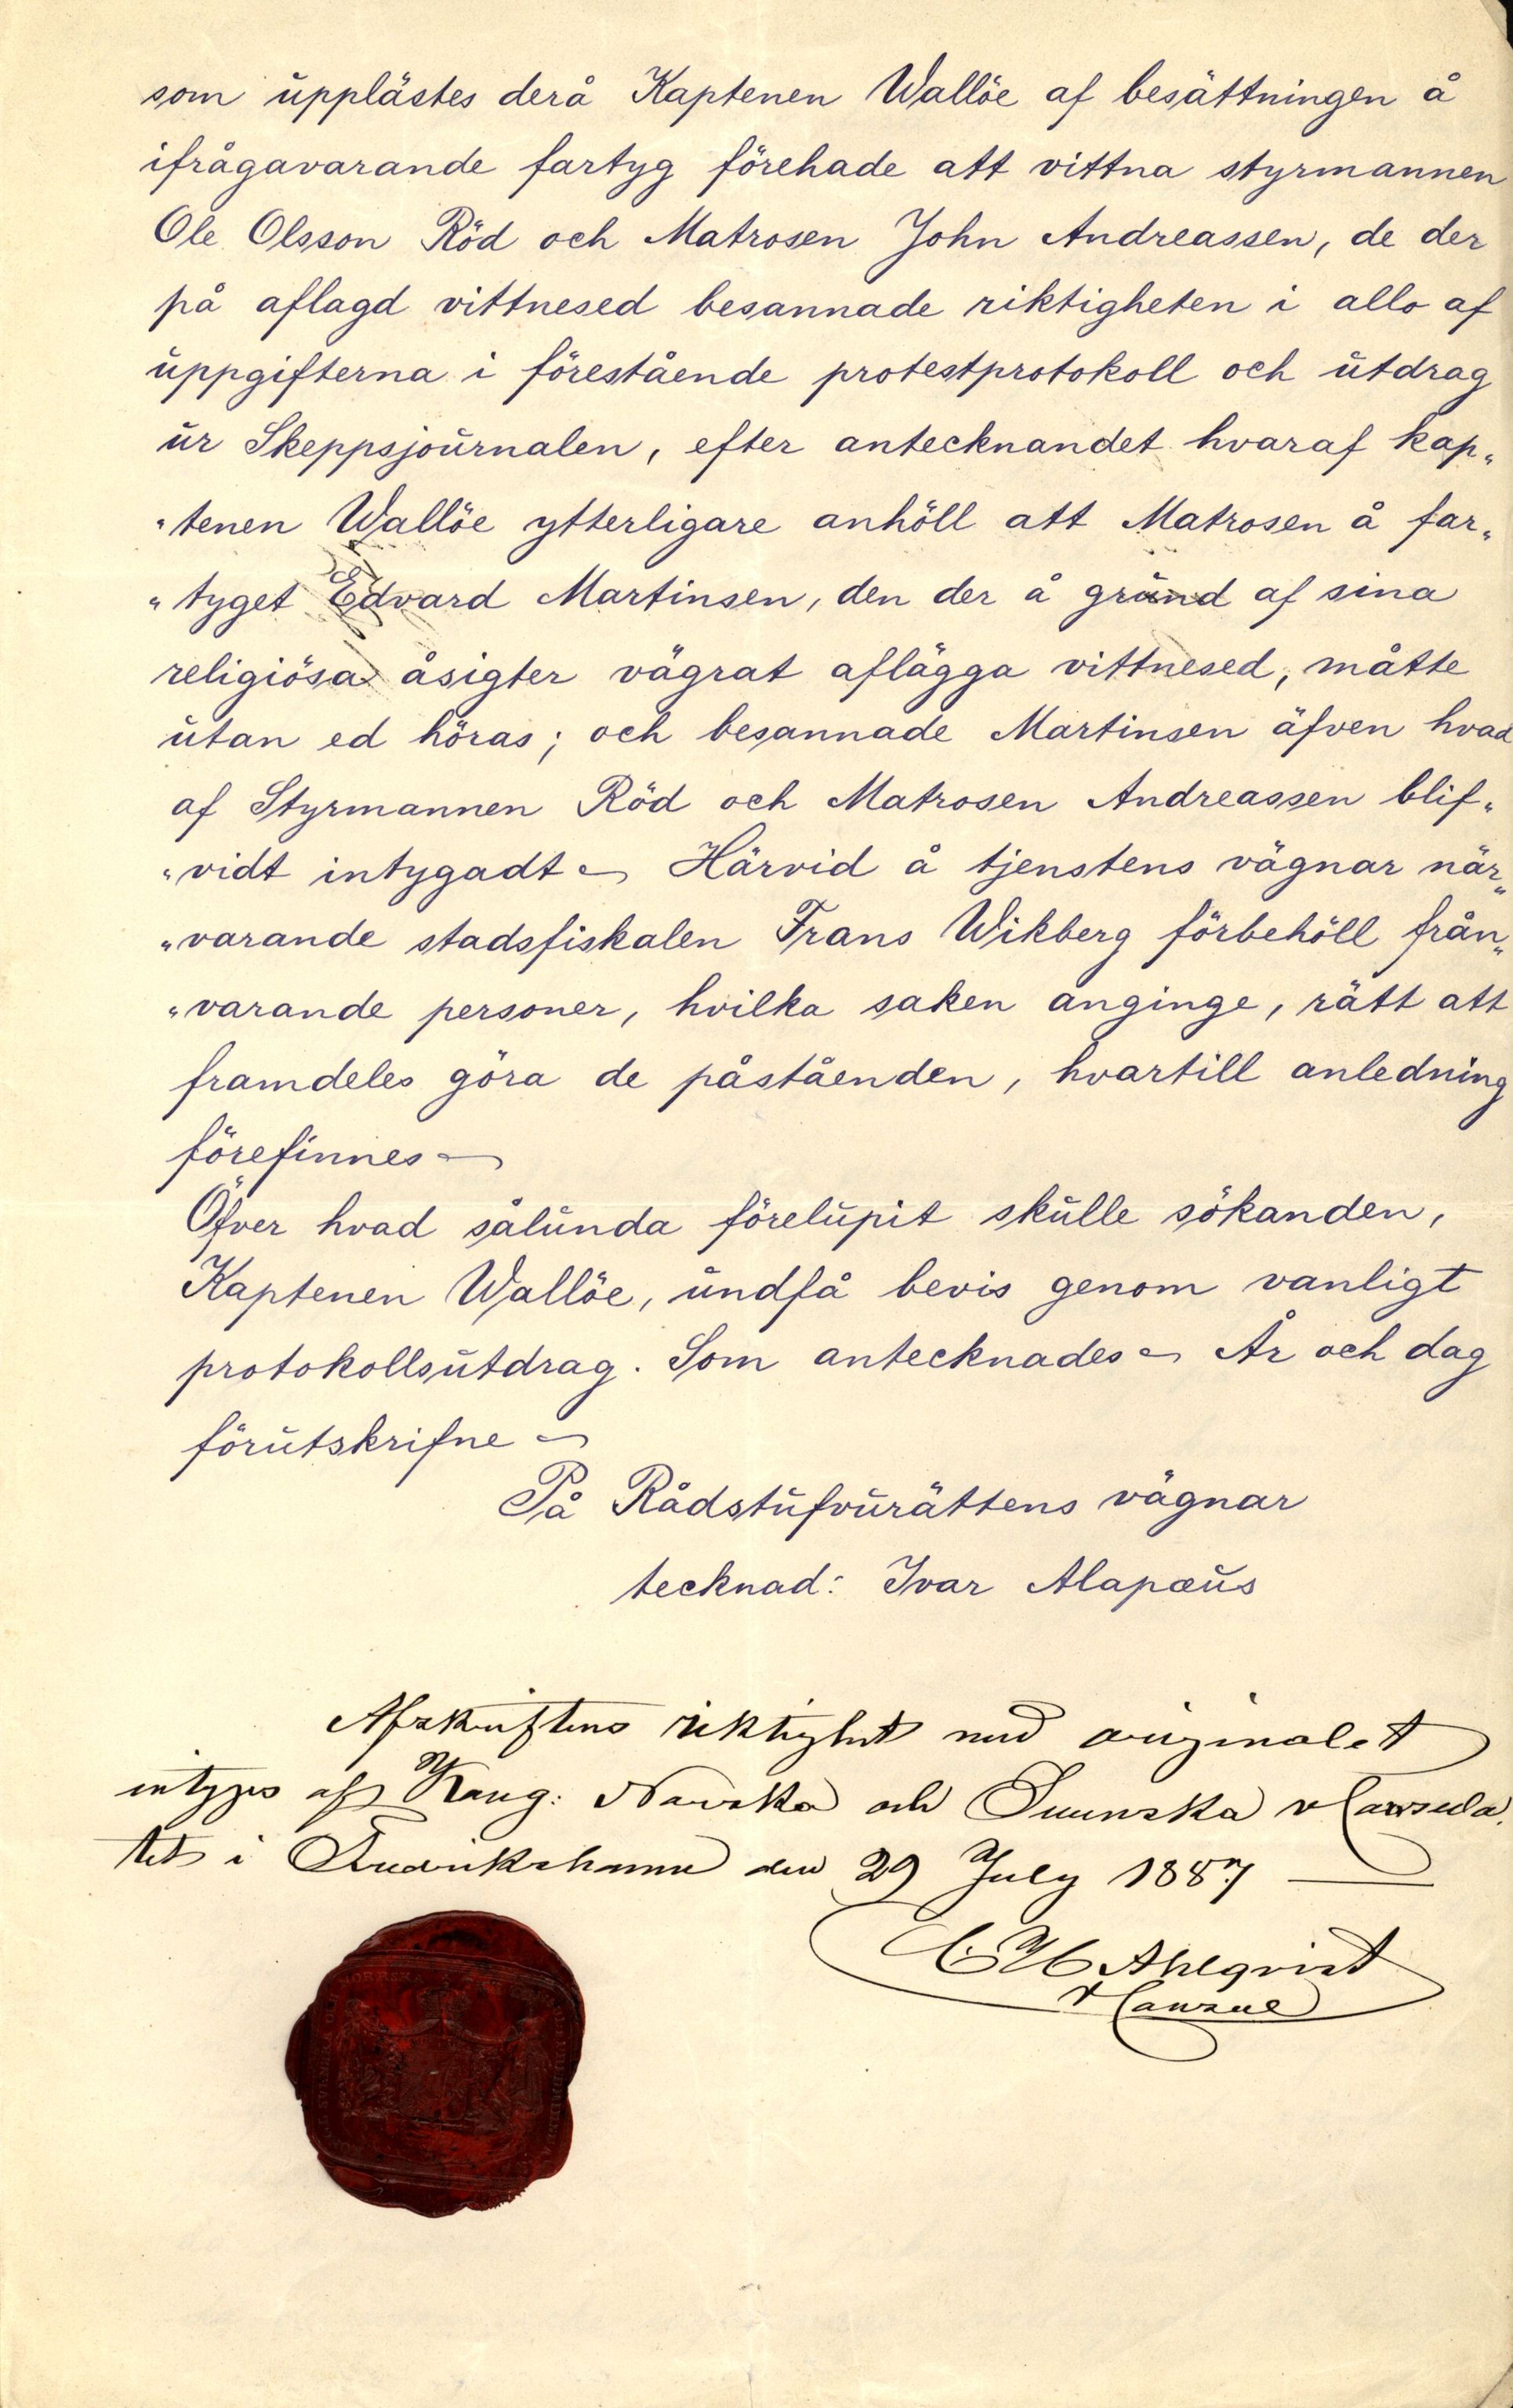 som upplästes derå Kaptenen Wallöe af besättningen å
ifrågavarande fartyg förehade att vittna styrmannen
Ole Olsson Röd och Matrosen John Andreassen, de der
på aflagd vittnesed besannade riktigheten i allo af
uppgifterna i förestående protestprotokoll och utdrag
ur Skeppsjournalen, efter antecknandet hvaraf kap„
„tenen Wallöe ytterligare anhöll att Matrosen å far„
„tyget Edvard Martinsen, den der å grund af sina
religiösa åsigter vägrat aflägga vittnesed, måtte
utan ed höras; och besannade Martinsen äfven hvad
af Styrmannen Röd och Matrosen Andreassen blif„
„vidt intygadt Härvid å tjenstens vägnar när„
„varande stadsfiskalen Frans Wikberg förbehöll från„
„varande personer, hvilka saken anginge, rätt att
framdeles göra de påståenden, hvartill anledning
förefinnes
Öfver hvad sålunda förelupit skulle sökanden,
Kaptenen Wallöe, undfå bevis genom vanligt
protokollsutdrag. Som antecknades År och dag
förutskrifne
På Rådstufvurättens vägnar
tecknad: Ivar Alapæus
Afskriftens riktighet med originalet
intygas af Kong: Norska och Svenska v Consula
tet i Fredrikshamn den 29 July 1887
C H Ahlqvist
v Consul